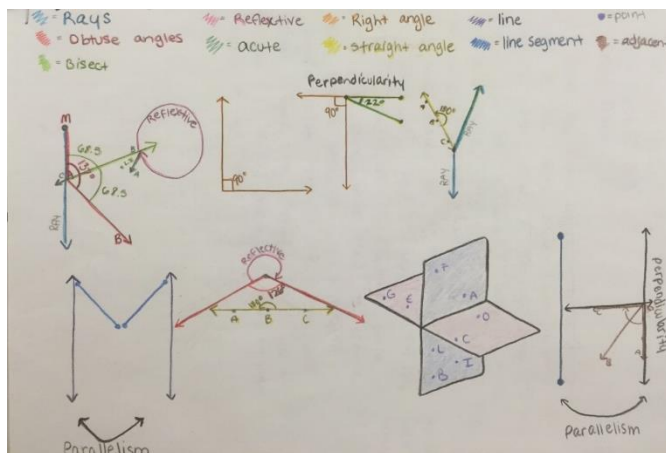 = Rays = Reflextive = Right angle = line = point
= Obtuse angles = acute = straight angle = line segment = adjacen
= Bisect
Perpendicularity
M
68.5
68.5
B
RAY
Reflextive
90°
90°
22°
RAY
RAY
Reflective
A B C
F
G
E
A
D
C
L
I
B
perpendicularity
Parallelism
Parallelism